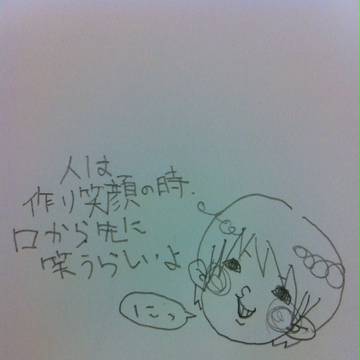 人は
作り笑顔の時.
口から先に
笑うらしいよ
にっ